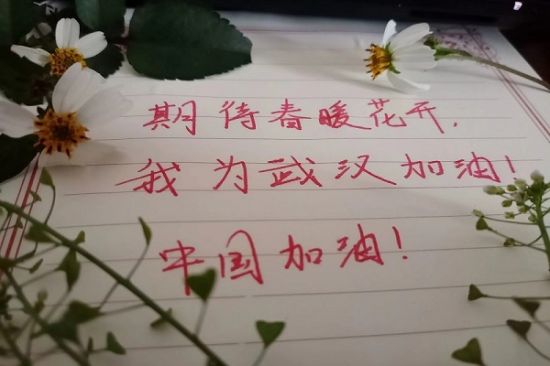 期待春暖花开,
我为武汉加油!
中国加油!